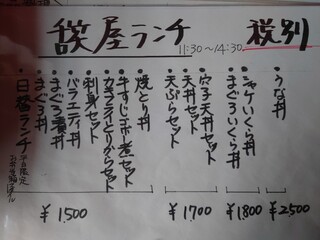 屋ランチ
11:30～14:30
税別
・うな丼
・シャケいくら丼
・まぐろいくら丼
・穴子天丼セット
・天丼セット
・天ぷらセット
・焼とり丼
・牛すじゴボー煮セット
・カキフライとりからセット
・刺身セット
・バラエティ丼
・まぐろ漬丼
・まぐろ丼
・日替ランチ
平日限定
¥1,500
¥1700
¥1800
¥2500